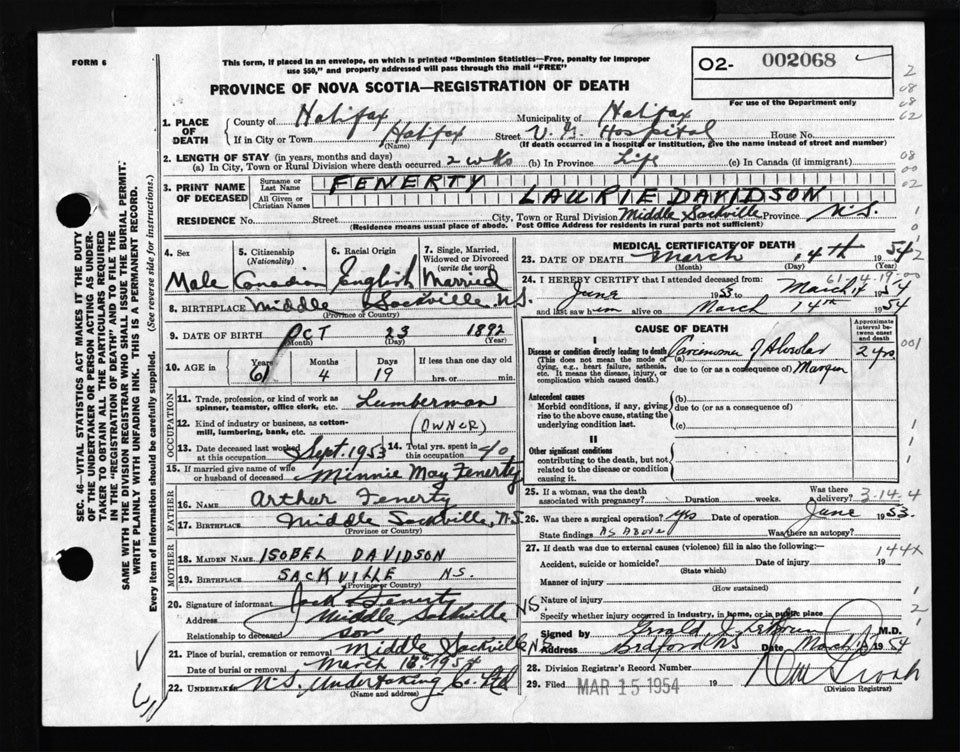 FORM 6
This form, if placed in an envelope, on which is printed "Dominion Statistics—Free, penalty for improper
use $50," and properly addressed will pass through the mail "FREE"
O2- 002068
For use of the Department only
PROVINCE OF NOVA SCOTIA—REGISTRATION OF DEATH
1. PLACE OF DEATH
County of Halifax Municipality of Halifax
If in City or Town Halifax Street V. G. Hospital House No.
(Name) (If death occurred in a hospital or institution, give the name instead of street and number)
2. LENGTH OF STAY (in years, months and days)
(a) In City, Town or Rural Division where death occurred 2 wks (b) In Province Life (c) In Canada (if immigrant)
3. PRINT NAME OF DECEASED
Surname or Last Name FENERTY
All Given or Christian Names LAURIE DAVIDSON
RESIDENCE No. Street City, Town or Rural Division Middle Sackville Province N.S.
(Residence means usual place of abode. Post Office Address for residents in rural parts not sufficient)
4. Sex Male
5. Citizenship (Nationality) Canadian
6. Racial Origin English
7. Single, Married, Widowed or Divorced (write the word) Married
8. BIRTHPLACE Middle Sackville. N.S.
(Province or Country)
9. DATE OF BIRTH OCT 23 1892
(Month) (Day) (Year)
10. AGE in Years Months Days If less than one day old
61 4 19 hrs. or min.
OCCUPATION
11. Trade, profession, or kind of work as spinner, teamster, office clerk, etc. Lumberman
12. Kind of industry or business, as cotton-mill, lumbering, bank, etc. (OWNER)
13. Date deceased last worked at this occupation Sept. 1953 14. Total yrs. spent in this occupation 40
15. If married give name of wife or husband of deceased Minnie May Fenerty
FATHER
16. NAME Arthur Fenerty
17. BIRTHPLACE Middle Sackville, N.S.
(Province or Country)
MOTHER
18. MAIDEN NAME ISOBEL DAVIDSON
19. BIRTHPLACE SACKVILLE N.S.
(Province or Country)
20. Signature of informant Jack Fenerty
Address Middle Sackville N.S.
Relationship to deceased son
21. Place of burial, cremation or removal Middle Sackville N.S.
Date of burial or removal March 1954
22. Undertaker N.S. Undertaking Co. Ltd
(Name and address)
MEDICAL CERTIFICATE OF DEATH
23. DATE OF DEATH March 14th 1954
(Month) (Day) (Year)
24. I HEREBY CERTIFY that I attended deceased from:
June 1953 to March 14 1954
and last saw him alive on March 14th 1954
CAUSE OF DEATH
Approximate interval between onset and death
I
Disease or condition directly leading to death (a) Carcinoma of Alveolar 2 yrs
(This does not mean the mode of dying, e.g., heart failure, asthenia, etc. It means the disease, injury, or complication which caused death.)
due to (or as a consequence of) Margin
Antecedent causes
Morbid conditions, if any, giving rise to the above cause, stating the underlying condition last.
(b)
due to (or as a consequence of)
(c)
II
Other significant conditions contributing to the death, but not related to the disease or condition causing it.
25. If a woman, was the death associated with pregnancy? Duration weeks. Was there a delivery? 3-14-4
26. Was there a surgical operation? yes Date of operation June 1953.
State findings AS ABOVE Was there an autopsy?
27. If death was due to external causes (violence) fill in also the following:— 144X
Accident, suicide or homicide? Date of injury 19
(State which)
Manner of injury
(How sustained)
Nature of injury
Specify whether injury occurred in industry, in home, or in public place
Signed by M.D.
Address Bedford NS Date March 1954
28. Division Registrar's Record Number
29. Filed MAR 15 1954 19
(Division Registrar)
SEC. 46—VITAL STATISTICS ACT MAKES IT THE DUTY
OF THE UNDERTAKER OR PERSON ACTING AS UNDER-
TAKER TO OBTAIN ALL THE PARTICULARS REQUIRED
IN THE "REGISTRATION OF DEATH" AND TO FILE THE
SAME WITH THE DIVISION REGISTRAR WHO SHALL ISSUE THE BURIAL PERMIT.
WRITE PLAINLY WITH UNFADING INK. THIS IS A PERMANENT RECORD.
Every item of information should be carefully supplied. (See reverse side for instructions.)